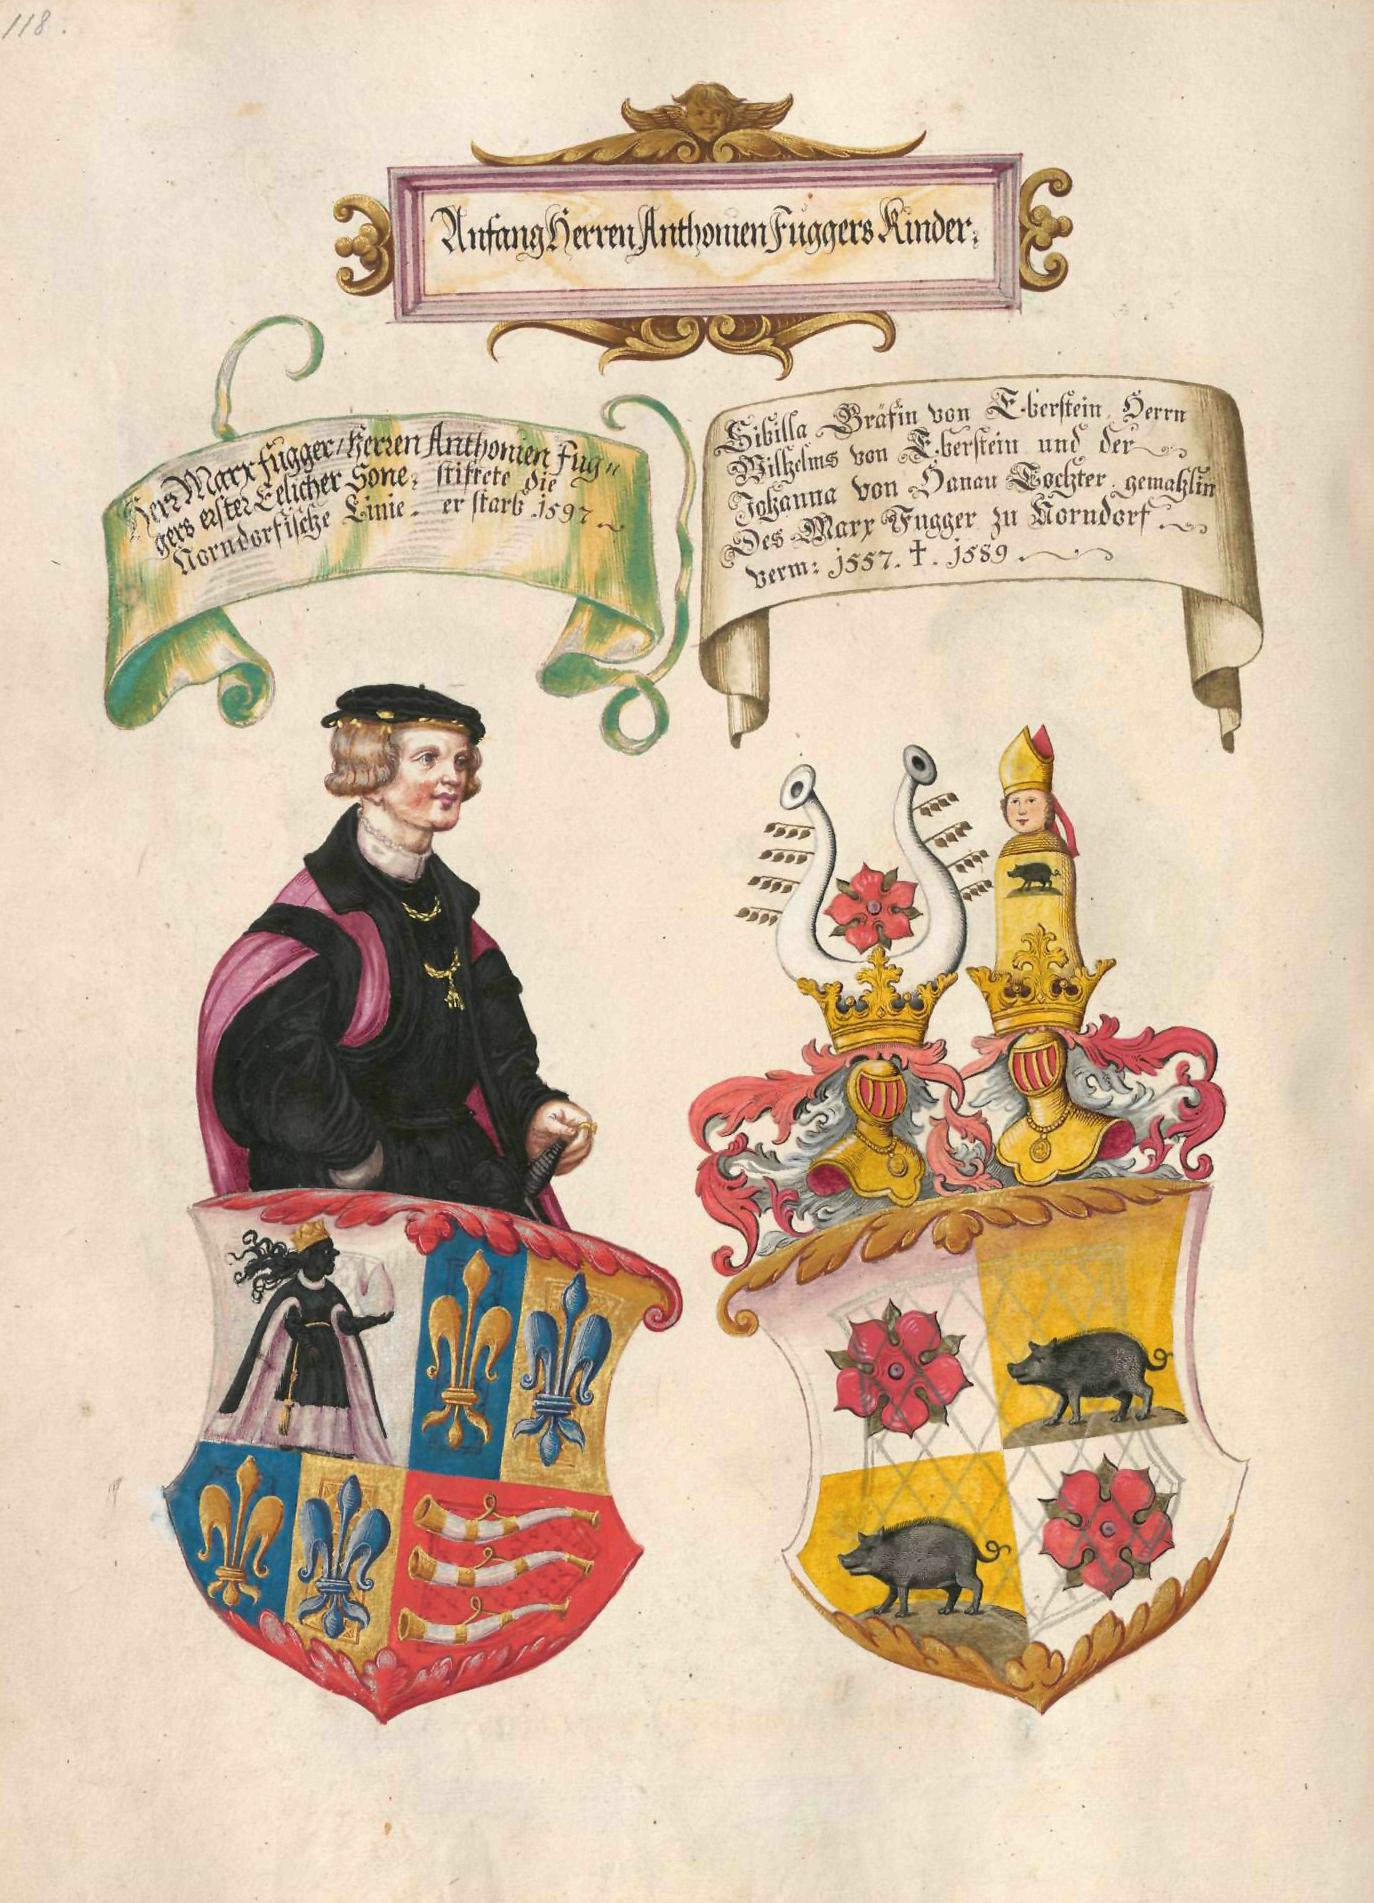 118.
Anfang Herren Anthonien Fuggers Kinder:
Herr Marx Fugger / Herren Anthonien Fug⸗
gers erster Eelicher Sone: stiftete die
Norndorfische Linie. er starb 1597.
Sibilla Gräfin von Eberstein, Herrn
Wilhelms von Eberstein und der
Johanna von Hanau Tochter, gemahlin
Des Marx Fugger zu Norndorf.
verm: 1557. †. 1589.